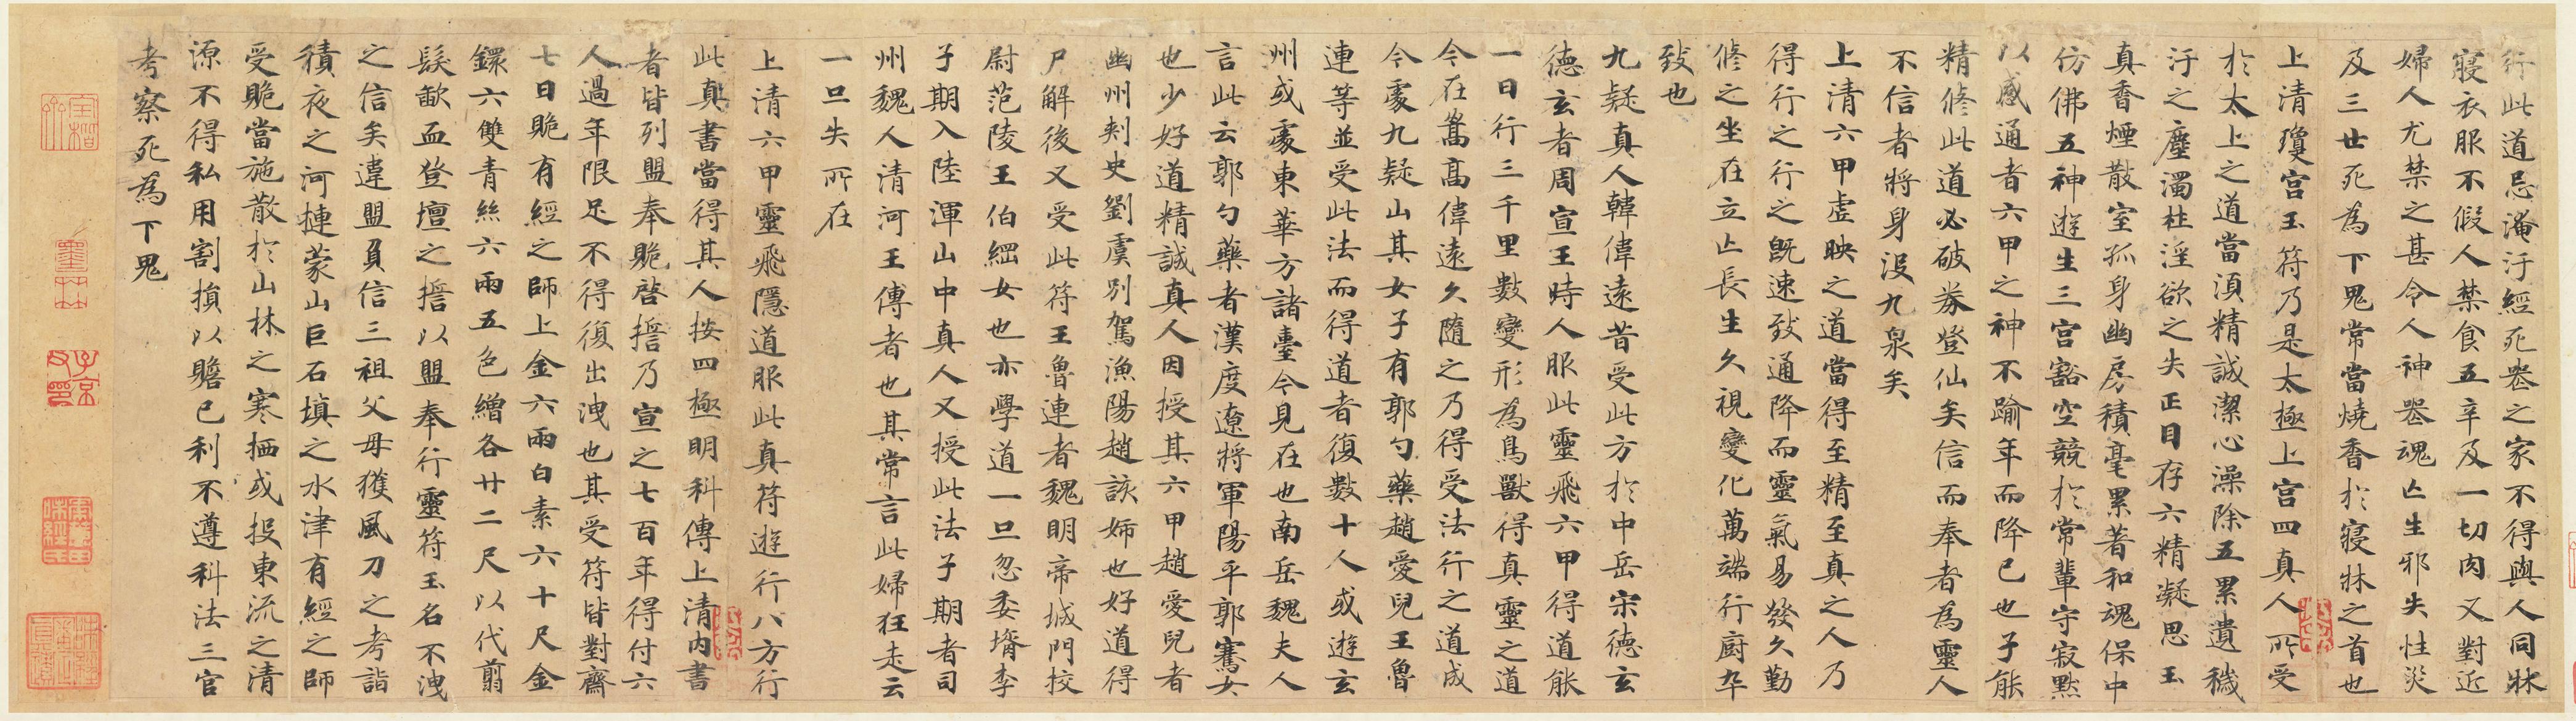 行此道忌淹汙經死丧之家不得與人同牀
寢衣服不假人禁食五辛及一切肉又對近
婦人尤禁之甚令人神丧魂亡生邪失性災
及三世死為下鬼常當燒香於寢牀之首也
上清瓊宫玉符乃是太極上宫四真人所受
於太上之道當須精誠潔心澡除五累遺穢
汙之塵濁杜淫欲之失正目存六精凝思玉
真香煙散室孤身幽房積毫累著和魂保中
仿佛五神遊生三宫豁空競於常輩守寂默
以感通者六甲之神不踰年而降已也子能
精修此道必破券登仙矣信而奉者為靈人
不信者將身没九泉矣
上清六甲虚映之道當得至精至真之人乃
得行之行之既速致通降而靈氣易發久勤
修之坐在立亡長生久視變化萬端行廚卒
致也
九疑真人韓偉遠昔受此方於中岳宋德玄
德玄者周宣王時人服此靈飛六甲得道能
一日行三千里數變形為鳥獸得真靈之道
今在嵩高偉遠久隨之乃得受法行之道成
今處九疑山其女子有郭勺藥趙愛兒王魯
連等並受此法而得道者復數十人或遊玄
州或處東華方諸臺今見在也南岳魏夫人
言此云郭勺藥者漢度遼將軍陽平郭騫女
也少好道精誠真人因授其六甲趙愛兒者
幽州刾史劉虞別駕漁陽趙該姊也好道得
尸解後又受此符王魯連者魏明帝城門校
尉范陵王伯綱女也亦學道一旦忽委壻李
子期入陸渾山中真人又授此法子期者司
州魏人清河王傅者也其常言此婦狂走云
一旦失所在
上清六甲靈飛隱道服此真符遊行八方行
此真書當得其人按四極明科傳上清内書
者皆列盟奉跪啓誓乃宣之七百年得付六
人過年限足不得復出洩也其受符皆對齋
七日跪有經之師上金六兩白素六十尺金
鐶六雙青絲六兩五色繒各廿二尺以代翦
髮歃血登壇之誓以盟奉行靈符玉名不洩
之信矣違盟負信三祖父母獲風刀之考詣
積夜之河捷蒙山巨石填之水津有經之師
受跪當施散於山林之寒栖或投東流之清
源不得私用割損以贍已利不遵科法三官
考察死為下鬼
子京父印